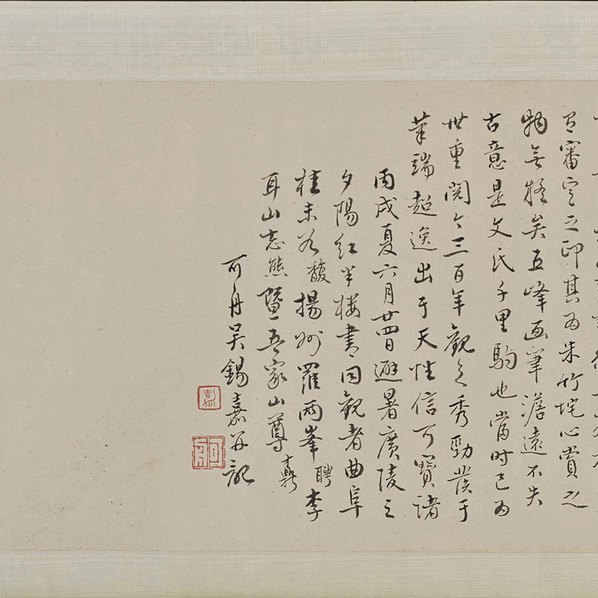 審定之印其为朱竹垞心賞之
物無疑矣五峰画筆澹遠不失
古意是文氏千里駒也當時已为
世重閱今三百年觀之秀勁發于
筆端超逸出于天性信可寶諸
丙戌夏六月廿四日避暑廣陵之
夕陽红半楼書同觀者曲阜
桂未谷馥揚州羅兩峯聘李
耳山志熊暨吾家山尊鼒
可舟吴錫嘉并記